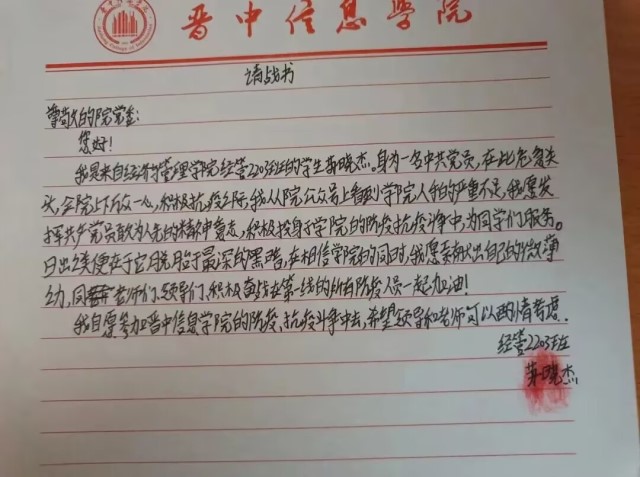 晋中信息学院
请战书
尊敬的院党委:
您好!
我是来自经济与管理学院经管2203班的学生郭晓杰。身为一名中共党员,在此危急关
头,全院上下万众一心,积极抗疫之际,我从院公众号上看到学院人手的严重不足,我愿发
挥共产党员敢为人先的精神意志,积极投身于学院的防疫抗疫斗争中,为同学们服务。
日出之美便在于它脱胎于最深的黑暗,在相信学院的同时,我愿意献出自己的微薄
之力,同老师们、领导们、积极奋战在第一线的所有防疫人员一起加油!
我自愿参加晋中信息学院的防疫、抗疫斗争中去,希望领导和老师可以酌情考虑.
经管2203班
晓杰